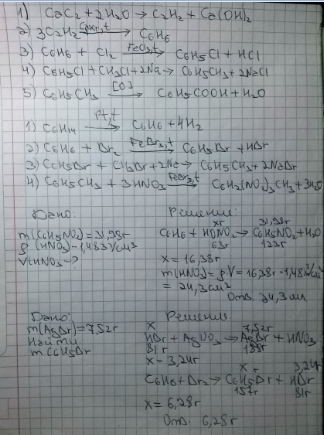 1) CaC2 + 2H2O → C2H2 + Ca(OH)2
2) 3C2H2 → C6H6
3) C6H6 + Cl2 FeCl3,t → C6H5Cl + HCl
4) C6H5Cl + CH3Cl + 2Na → C6H5CH3 + 2NaCl
5) C6H5CH3 [O] → C6H5COOH + H2O
1) C6H14 Pt,t → C6H6 + 4H2
2) C6H6 + Br2 FeBr3,t → C6H5Br + HBr
3) C6H5Br + CH3Br + 2Na → C6H5CH3 + 2NaBr
4) C6H5CH3 + 3HNO3 → C6H2(NO2)3CH3 + 3H2O
Дано:
m(C6H5NO2) = 31,98г
ρ(HNO3) = 1,483г/см³
V(HNO3) - ?
Решение:
xг 31,98г
C6H6 + HONO2 → C6H5NO2 + H2O
63г 123г
x = 16,38г
m(HNO3) = ρV = 16,38г · 1,48г/см³
= 24,3см³
Отв. 24,3 мл
Дано:
m(AgBr) = 7,52г
Найти
m C6H5Br
Решение
x 7,52г
HBr + AgNO3 → AgBr + HNO3
81г 188г
x = 3,24г
x г 3,24г
C6H6 + Br2 → C6H5Br + HBr
157г 81г
x = 6,28г
Отв. 6,28г